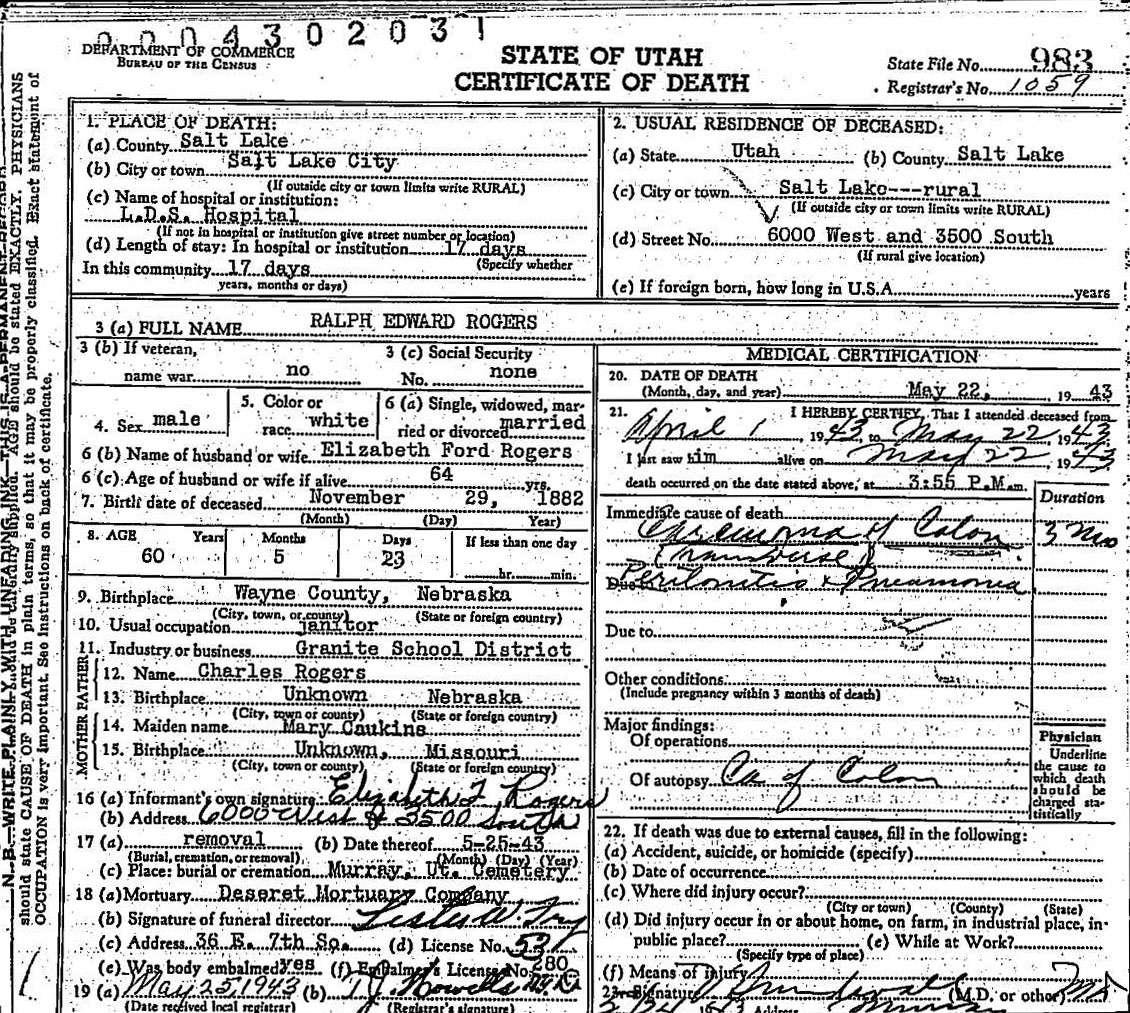 0004302031
DEPARTMENT OF COMMERCE
BUREAU OF THE CENSUS
STATE OF UTAH
CERTIFICATE OF DEATH
State File No. 983
Registrar's No. 1059
N. B.—WRITE PLAINLY, WITH UNFADING INK—THIS IS A PERMANENT RECORD
should be stated EXACTLY. PHYSICIANS
should state CAUSE OF DEATH in plain terms, so that it may be properly classified. Exact statement of
OCCUPATION is very important. See instructions on back of certificate.
1. PLACE OF DEATH:
(a) County Salt Lake
(b) City or town Salt Lake City
(If outside city or town limits write RURAL)
(c) Name of hospital or institution:
L.D.S. Hospital
(If not in hospital or institution give street number or location)
(d) Length of stay: In hospital or institution 17 days
(Specify whether
In this community 17 days
years, months or days)
2. USUAL RESIDENCE OF DECEASED:
(a) State Utah (b) County Salt Lake
(c) City or town Salt Lake---rural
(If outside city or town limits write RURAL)
(d) Street No. 6000 West and 3500 South
(If rural give location)
(e) If foreign born, how long in U.S.A. years
3 (a) FULL NAME RALPH EDWARD ROGERS
3 (b) If veteran, name war no
3 (c) Social Security No. none
4. Sex male
5. Color or race white
6 (a) Single, widowed, married or divorced married
6 (b) Name of husband or wife Elizabeth Ford Rogers
6 (c) Age of husband or wife if alive 64 yrs.
7. Birth date of deceased November 29, 1882
(Month) (Day) Year)
8. AGE Years Months Days If less than one day
60 5 23 hr. min.
9. Birthplace Wayne County, Nebraska
(City, town, or county) (State or foreign country)
10. Usual occupation janitor
11. Industry or business Granite School District
FATHER
12. Name Charles Rogers
13. Birthplace Unknown Nebraska
(City, town or county) (State or foreign country)
MOTHER
14. Maiden name Mary Caukins
15. Birthplace Unknown, Missouri
(City, town or county) (State or foreign country)
16 (a) Informant's own signature Elizabeth F Rogers
(b) Address 6000 West & 3500 South
17 (a) removal (b) Date thereof 5-25-43
(Burial, cremation, or removal) (Month) (Day) (Year)
(c) Place: burial or cremation Murray, Ut. Cemetery
18 (a) Mortuary Deseret Mortuary Company
(b) Signature of funeral director
(c) Address 36 E. 7th So. (d) License No. 531
(e) Was body embalmed? yes (f) Embalmer's License No. 280
19 (a) May 25, 1943 (b) T. J. Howells
(Date received local registrar) (Registrar's signature)
MEDICAL CERTIFICATION
20. DATE OF DEATH
(Month, day, and year) May 22, 1943
21. I HEREBY CERTIFY, That I attended deceased from
April 1, 1943 to May 22 1943
I last saw him alive on May 22, 1943
death occurred on the date stated above, at 3:55 P.M. m.
Duration
Immediate cause of death
Carcinoma of Colon 3 Mo
(Transverse)
Due to Peritonitis & Pneumonia
Due to
Other conditions
(Include pregnancy within 3 months of death)
Major findings:
Of operations
Of autopsy Ca of Colon
Physician
Underline
the cause to
which death
should be
charged sta-
tistically
22. If death was due to external causes, fill in the following:
(a) Accident, suicide, or homicide (specify)
(b) Date of occurrence
(c) Where did injury occur?
(City or town) (County) (State)
(d) Did injury occur in or about home, on farm, in industrial place, in-
public place? (e) While at Work?
(Specify type of place)
(f) Means of injury
23. Signature (M.D. or other)
Address Murray